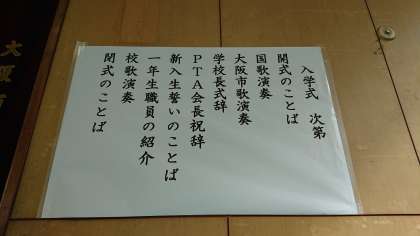 入学式　次第
開式のことば
国歌演奏
大阪市歌演奏
学校長式辞
PTA会長祝辞
新入生誓いのことば
一年生職員の紹介
校歌演奏
閉式のことば
大阪